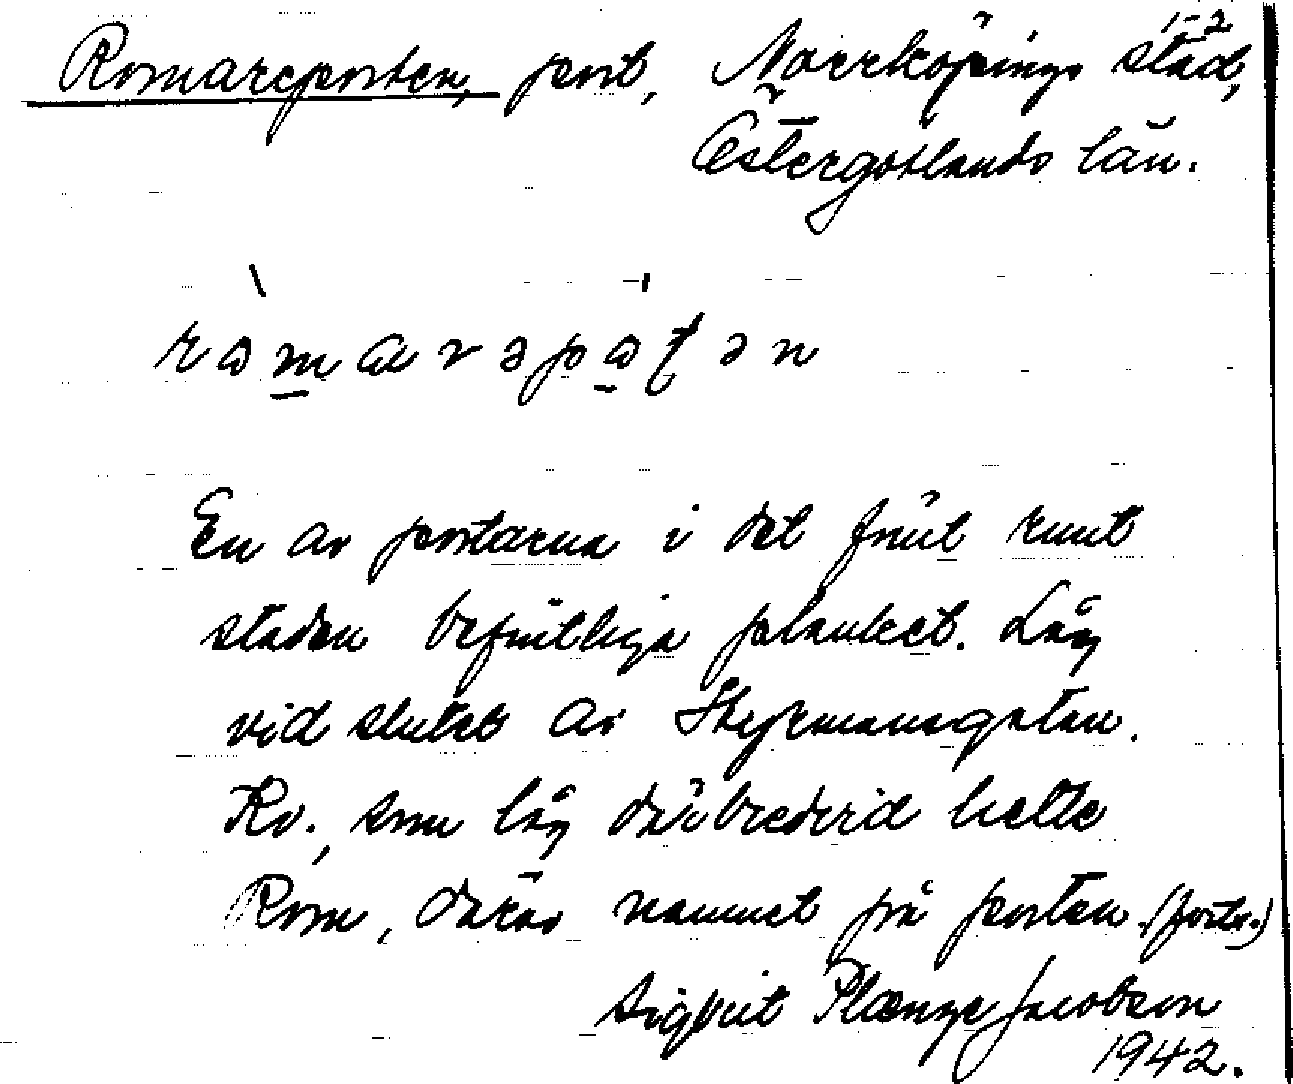 1-2
Romareporten, port, Norrköpings stad,
Östergötlands län.
En av portarna i det förut runt
staden befintliga planket. Låg
vid slutet av Styrmansgatan.
Kv., som låg därbredvid hette
Rom, därav namnet på porten. (forts.)
Sigbrit Plænge Jacobson
1942.